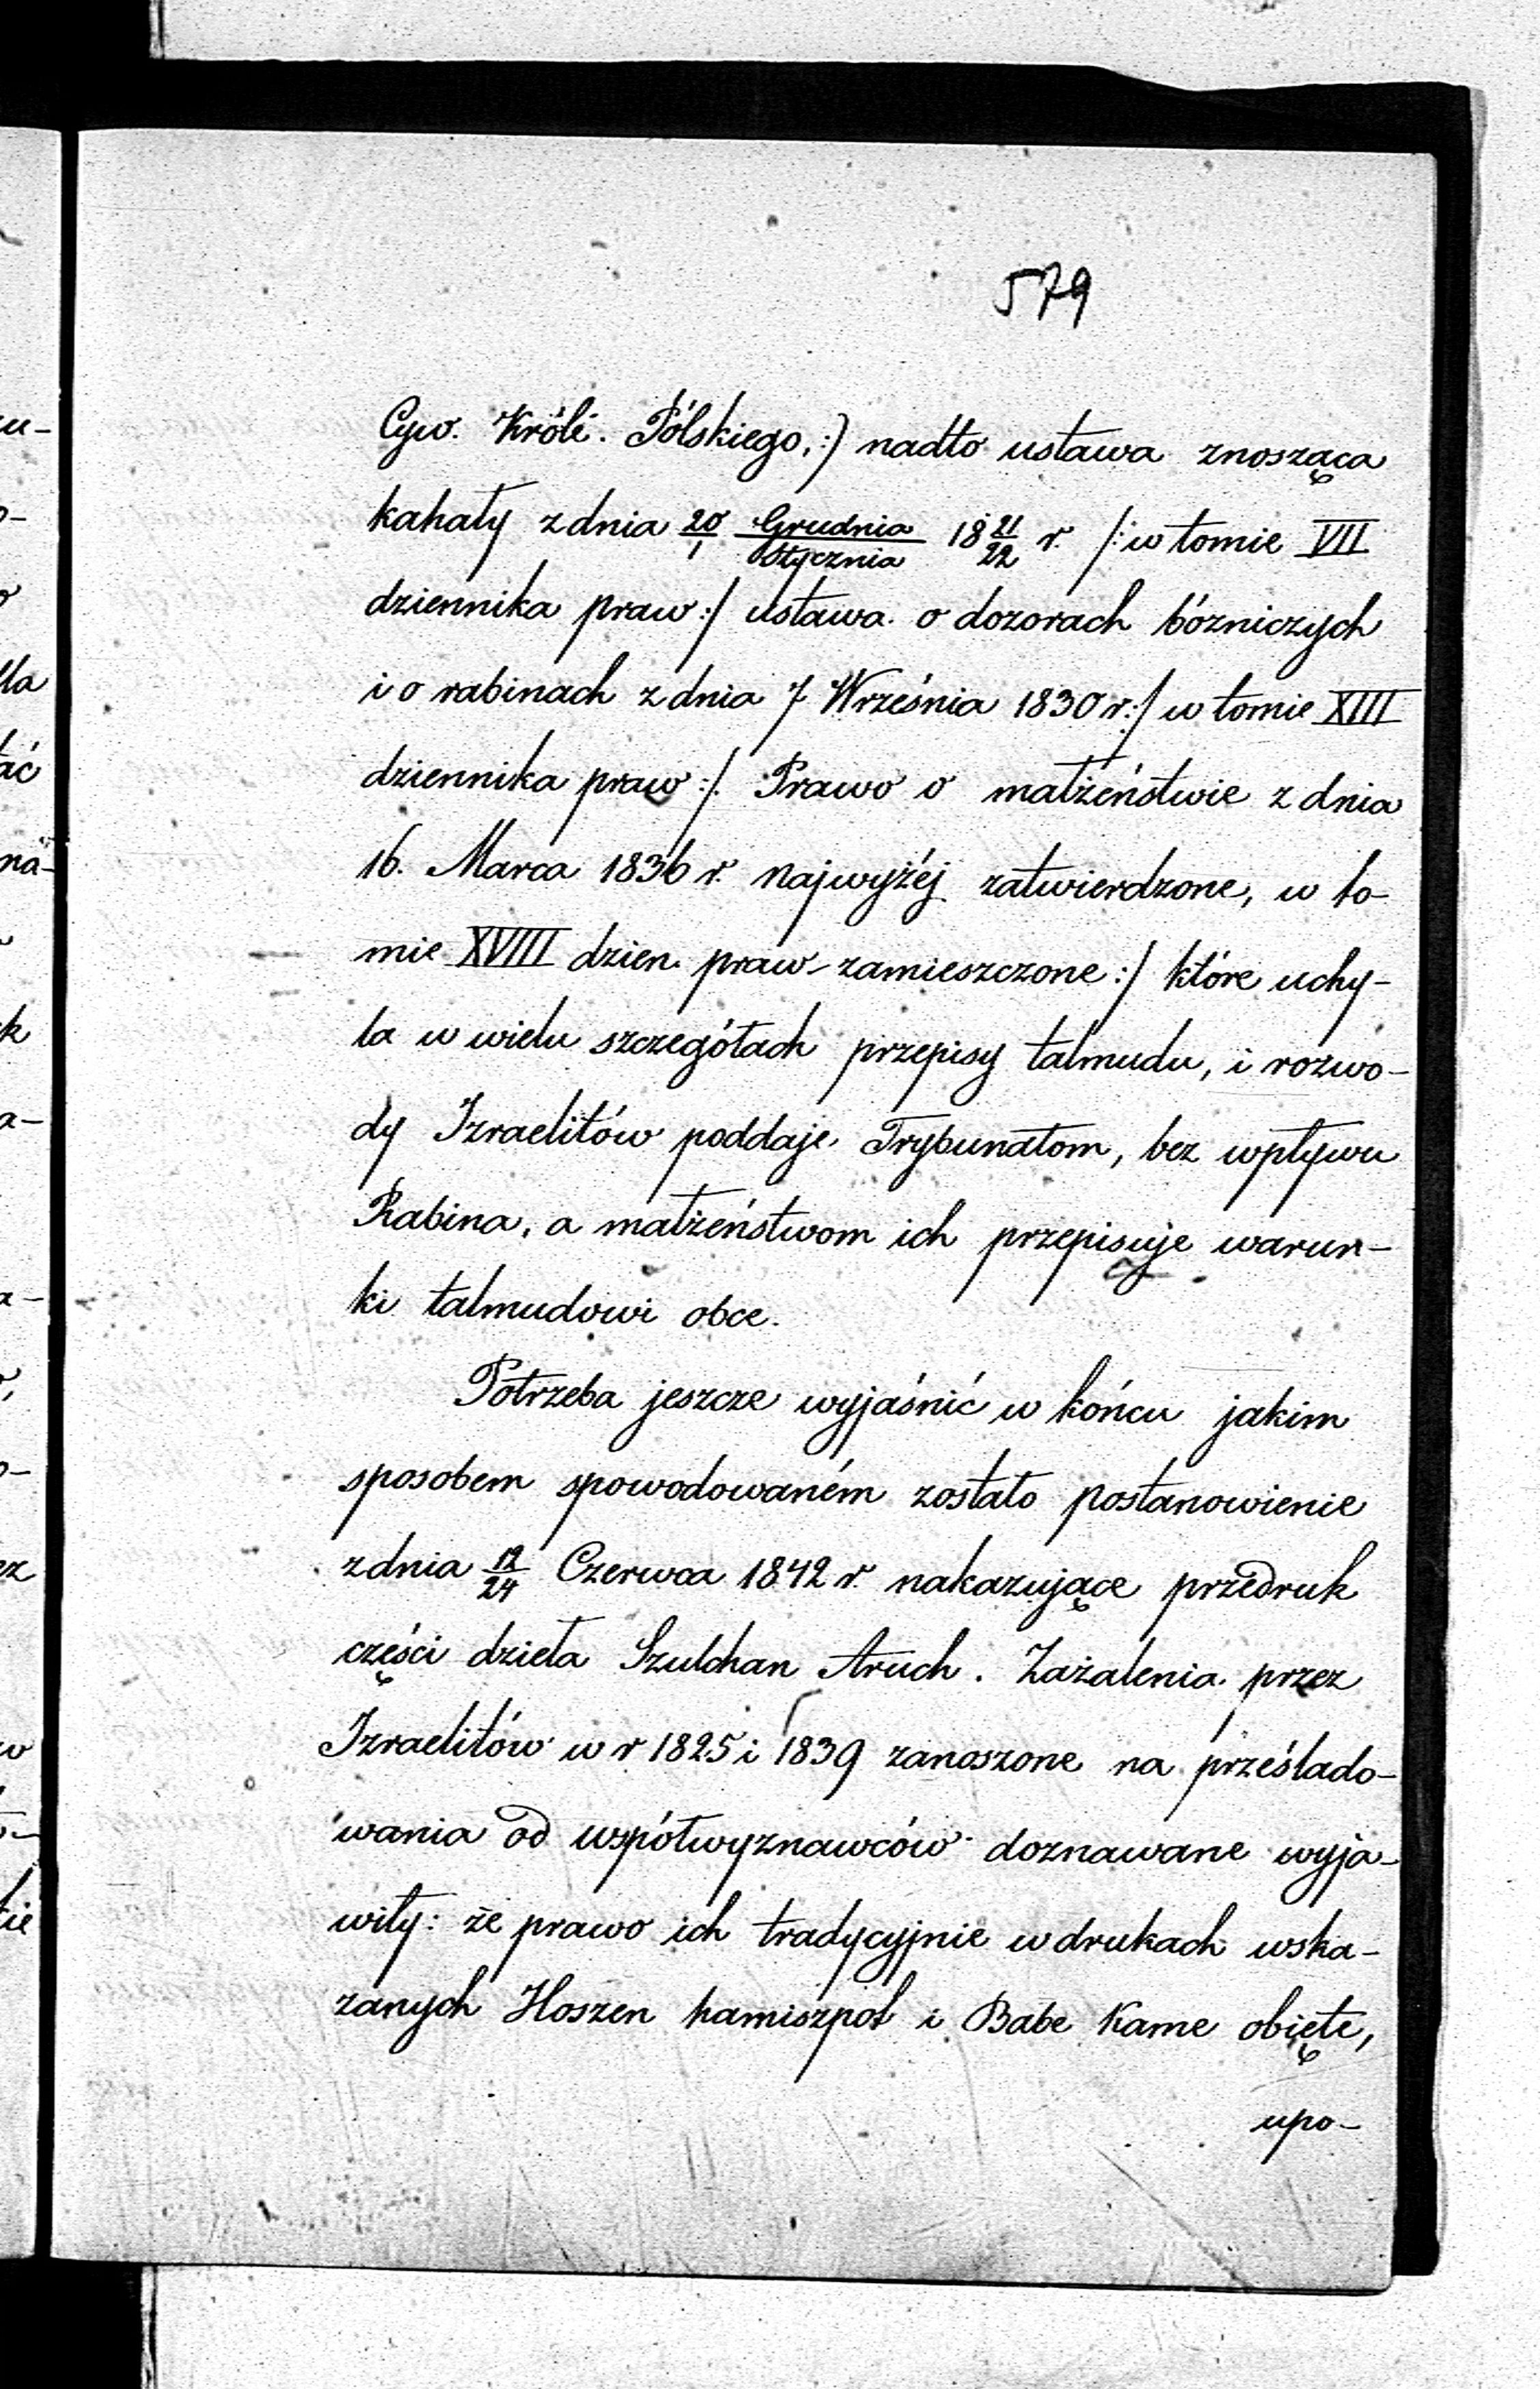 579
Cyw. Króle. Pólskiego,:) nadto ustawa znosząca
kahały z dnia 20/1 Grudnia/Stycznia 18 21/22 r. /: w tomie VII
dziennika praw :/ ustawa o dozorach bózniczych
i o rabinach z dnia 7 Września 1830 r :/ w tomie XIII
dziennika praw :/. Prawo o małżeństwie z dnia
16. Marca 1836 r. najwyżéj zatwierdzone, w to-
mie XVIII dzien. praw zamieszczone :/ które uchy-
la w wielu szczegółach przepisy talmudu, i rozwo-
dy Izraelitów poddaje Trybunałom, bez wpływu
Rabina, a małżeństwom ich przepisuje warun-
ki talmudowi obce.
Potrzeba jeszcze wyjaśnić w końcu jakim
sposobem spowodowaném zostało postanowienie
z dnia 12/24 Czerwca 1842 r. nakazujące przedruk
części dzieła Szulchan Aruch. Zażalenia przez
Izraelitów w r 1825 i 1839 zanoszone na prześlado-
wania od współwyznawców doznawane wyja-
wiły: że prawo ich tradycyjnie w drukach wska-
zanych Hoszen hamiszpot i Babe Kame obięte,
upo-